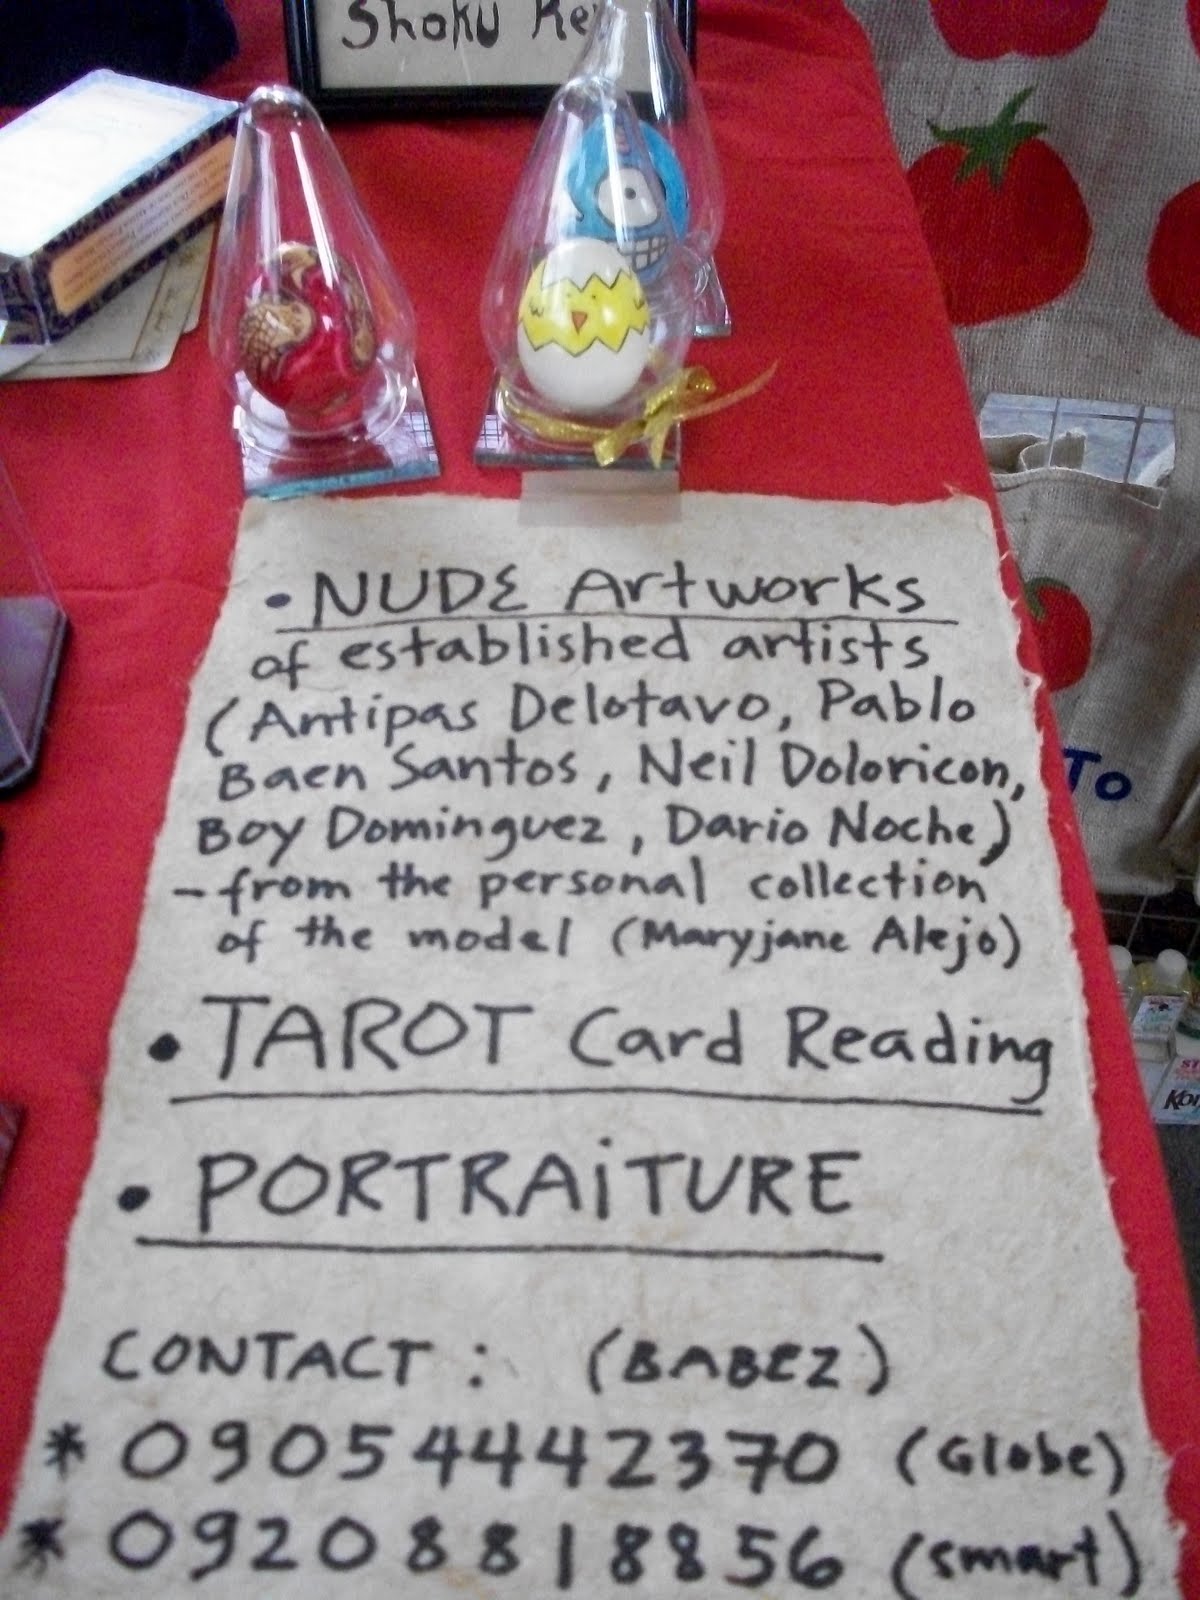 Shoku
• NUDE Artworks
of established artists
(Antipas Delotavo, Pablo
Baen Santos, Neil Doloricon,
Boy Dominguez, Dario Noche)
- from the personal collection
of the model (Maryjane Alejo)
• TAROT Card Reading
• PORTRAiTURE
CONTACT : (BABEZ)
* 09054442370 (Globe)
* 09208818856 (smart)
To